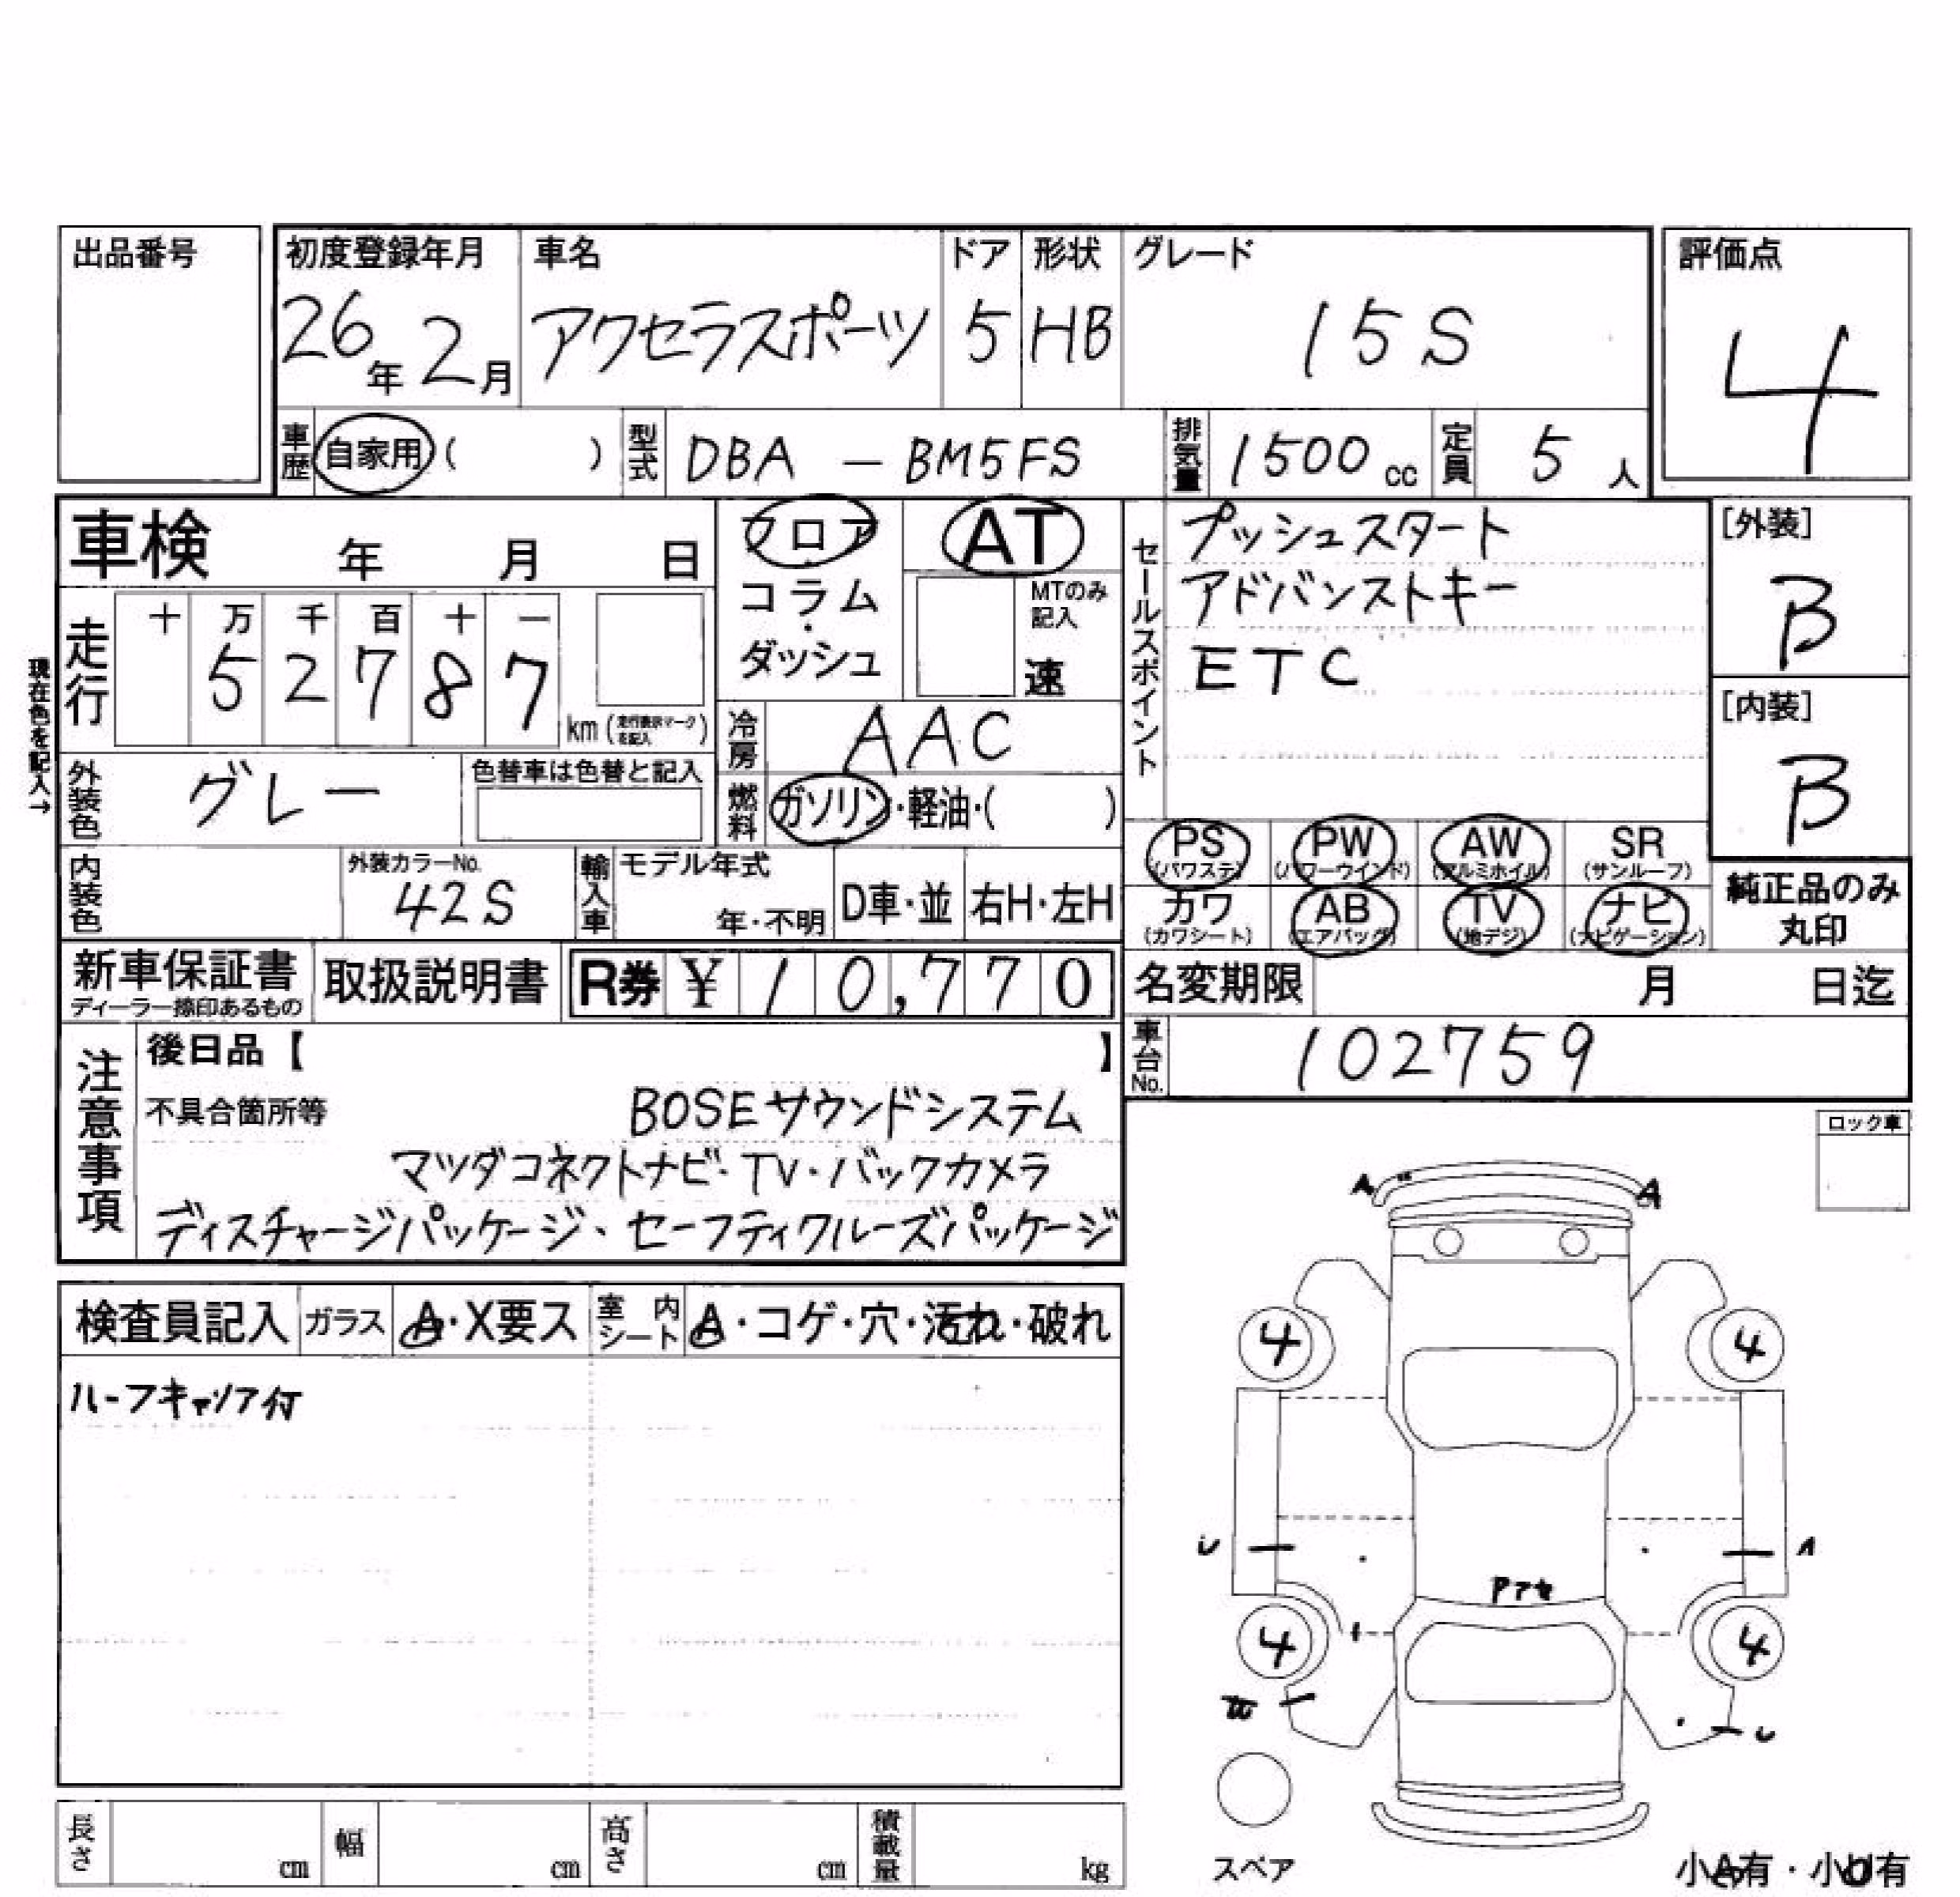 出品番号
初度登録年月 車名 ドア 形状 グレード 評価点
26年 2月 アクセラスポーツ 5 HB 15S 4
車歴 自家用 ( ) 型式 DBA — BM5FS 排気量 1500 cc 定員 5 人
車検 年 月 日
フロア
コラム
・
ダッシュ
AT
MTのみ
記入
速
走行 十 万 千 百 十 一
5 2 7 8 7
km (走行表示マークを記入)
現在色を記入→
冷房 AAC
燃料 ガソリン・軽油・( )
外装色 グレー 色替車は色替と記入
内装色 外装カラーNo. 42S 輸入車 モデル年式 年・不明 D車・並 右H・左H
セールスポイント
プッシュスタート
アドバンストキー
ETC
[外装]
B
[内装]
B
PS (パワステ) PW (パワーウインド) AW (アルミホイル) SR (サンルーフ)
カワ (カワシート) AB (エアバッグ) TV (地デジ) ナビ (ナビゲーション)
純正品のみ
丸印
新車保証書 ディーラー捺印あるもの 取扱説明書 R券 ¥ 10,770
名変期限 月 日迄
車台No. 102759
注意事項
後日品【 】
不具合箇所等 BOSEサウンドシステム
マツダコネクトナビ・TV・バックカメラ
ディスチャージパッケージ、セーフティクルーズパッケージ
ロック車
A A
検査員記入 ガラス A・X要ス 室内シート A・コゲ・穴・汚れ・破れ
ルーフキャリア付
4 4
U A
Pアセ
4 4
U
スペア
長さ cm 幅 cm 高さ cm 積載量 kg
小A有・小U有